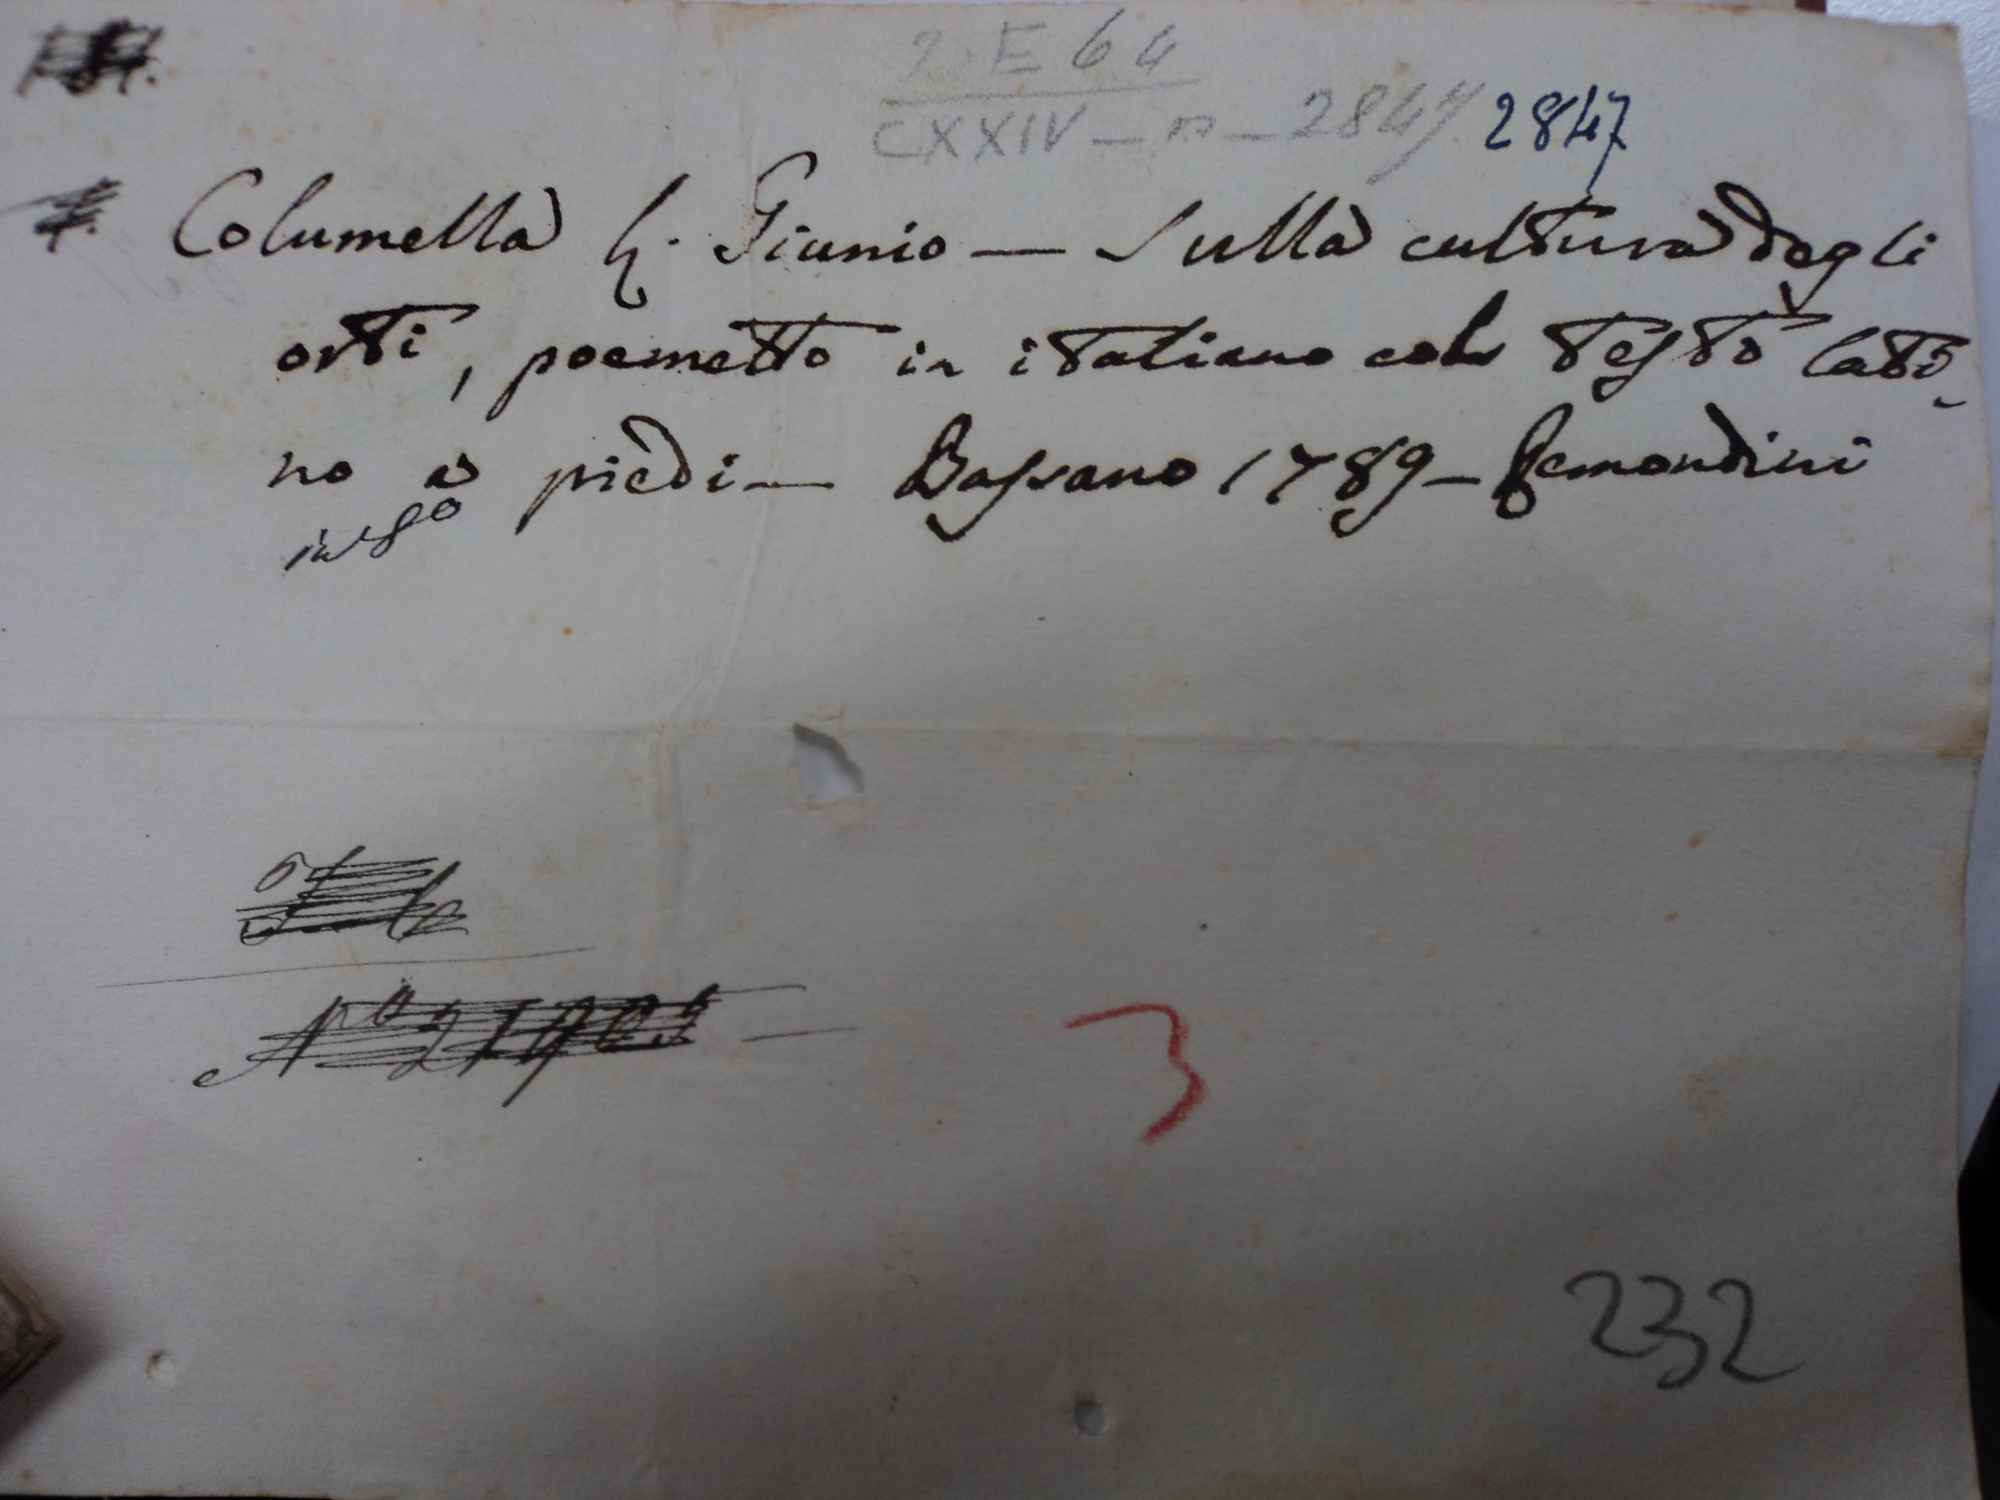 E 64
CXXIV - n - 2847 2847
Columella L. Giunio — Sulla cultura degli
orti, poemetto in italiano col testo lati-
no a piedi — Bassano 1789 — Remondini
in 8o
No 21903
3
232